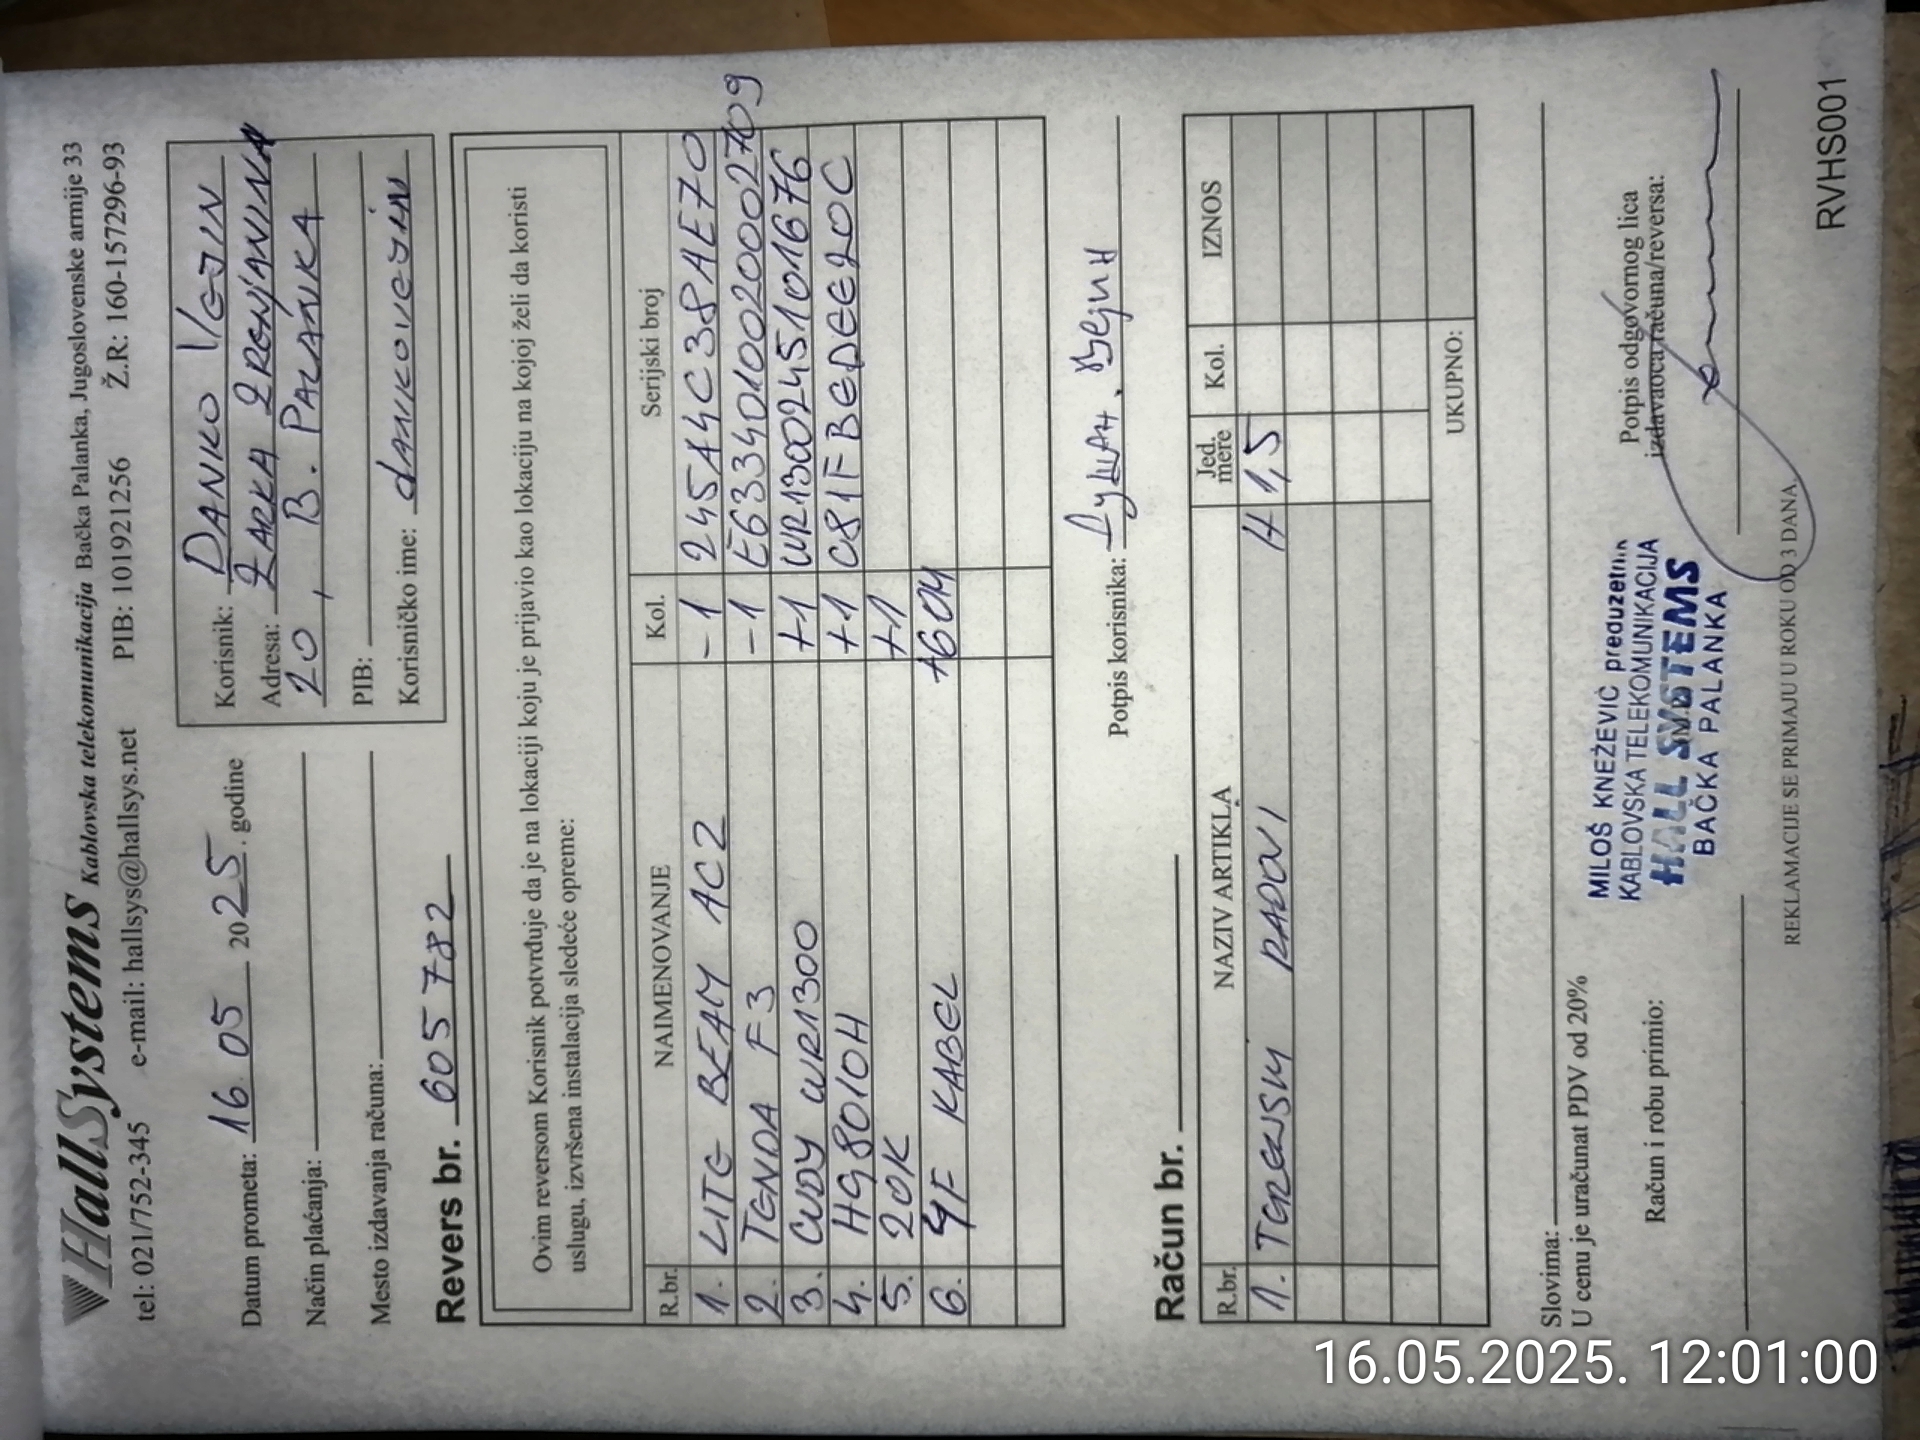 HallSystems Kablovska telekomunikacija Bačka Palanka, Jugoslovenske armije 33
tel: 021/752-345 e-mail: hallsys@hallsys.net PIB: 101921256 Ž.R: 160-157296-93
Datum prometa: 16. 05 2025. godine
Način plaćanja:
Mesto izdavanja računa:
Korisnik: DANKO VEJIN
Adresa: ŽARKA ZRENJANINA
20, B. PALANKA
PIB:
Korisničko ime: dankovejin
Revers br. 605782
Ovim reversom Korisnik potvrđuje da je na lokaciji koju je prijavio kao lokaciju na kojoj želi da koristi
uslugu, izvršena instalacija sledeće opreme:
R.br. NAIMENOVANJE Kol. Serijski broj
1. LITE BEAM AC2 -1 245A4C38AE70
2. TENDA F3 -1 E6334010020002709
3. CUDY WR1300 +1 WR1300245101676
4. HG8010H +1 C81FBEDEE20C
5. 20K +1
6. 4F KABEL +60M
Potpis korisnika: Душан. Вејин
Račun br.
R.br. NAZIV ARTIKLA Jed. mere Kol. IZNOS
1. TERENSKI RADOVI H 1,5
UKUPNO:
Slovima:
U cenu je uračunat PDV od 20%
Račun i robu primio:
MILOŠ KNEŽEVIĆ preduzetnik
KABLOVSKA TELEKOMUNIKACIJA
HALL SYSTEMS
BAČKA PALANKA
Potpis odgovornog lica
izdavaoca računa/reversa:
REKLAMACIJE SE PRIMAJU U ROKU OD 3 DANA.
RVHS001
16.05.2025. 12:01:00